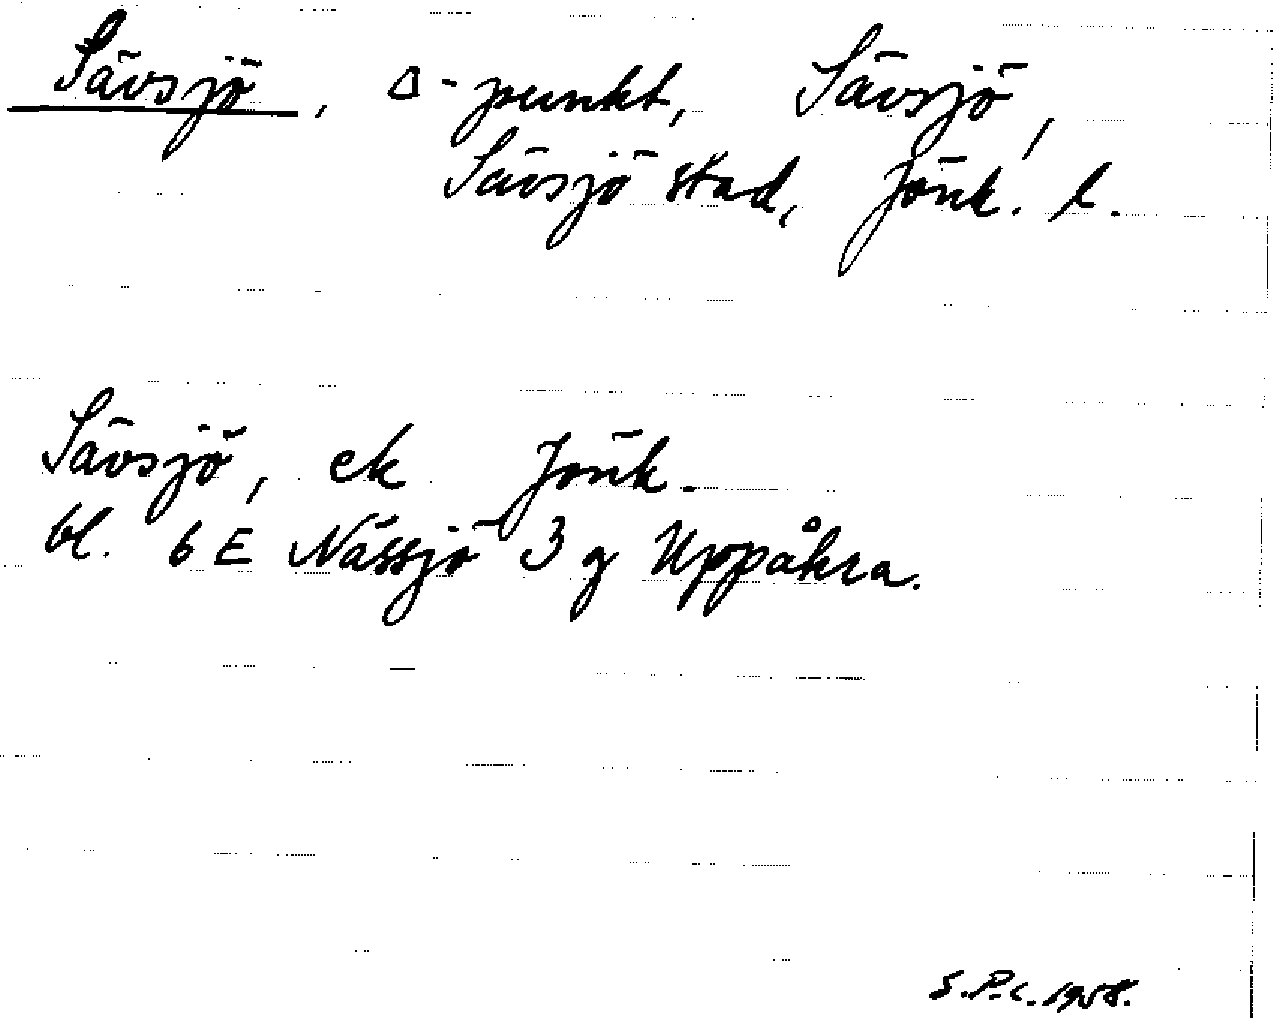 Sävsjö, △-punkt, Sävsjö,
Sävsjö stad, Jönk. l.
Sävsjö, ek Jönk.
bl. 6 E Nässjö 3 g Uppåkra.
S.P.C. 1958.